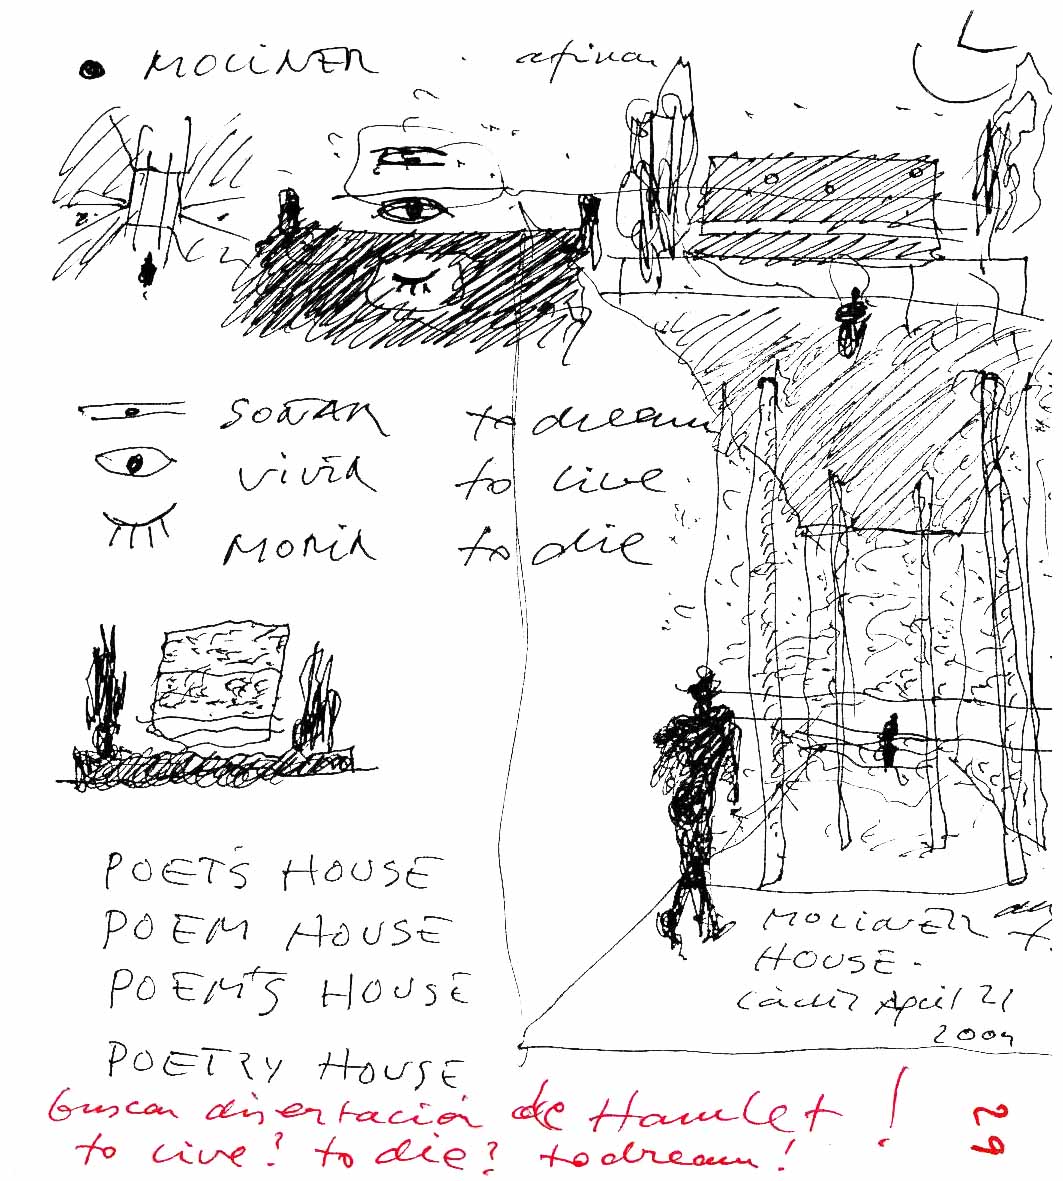 MOLINER · afinar
SOÑAR to dream
VIVIR to live
MORIR to die
POET'S HOUSE
POEM HOUSE
POEM'S HOUSE
POETRY HOUSE
MOLINER
HOUSE.
Cádiz April 21
2009
buscar disertación de Hamlet!
to live? to die? to dream!
29